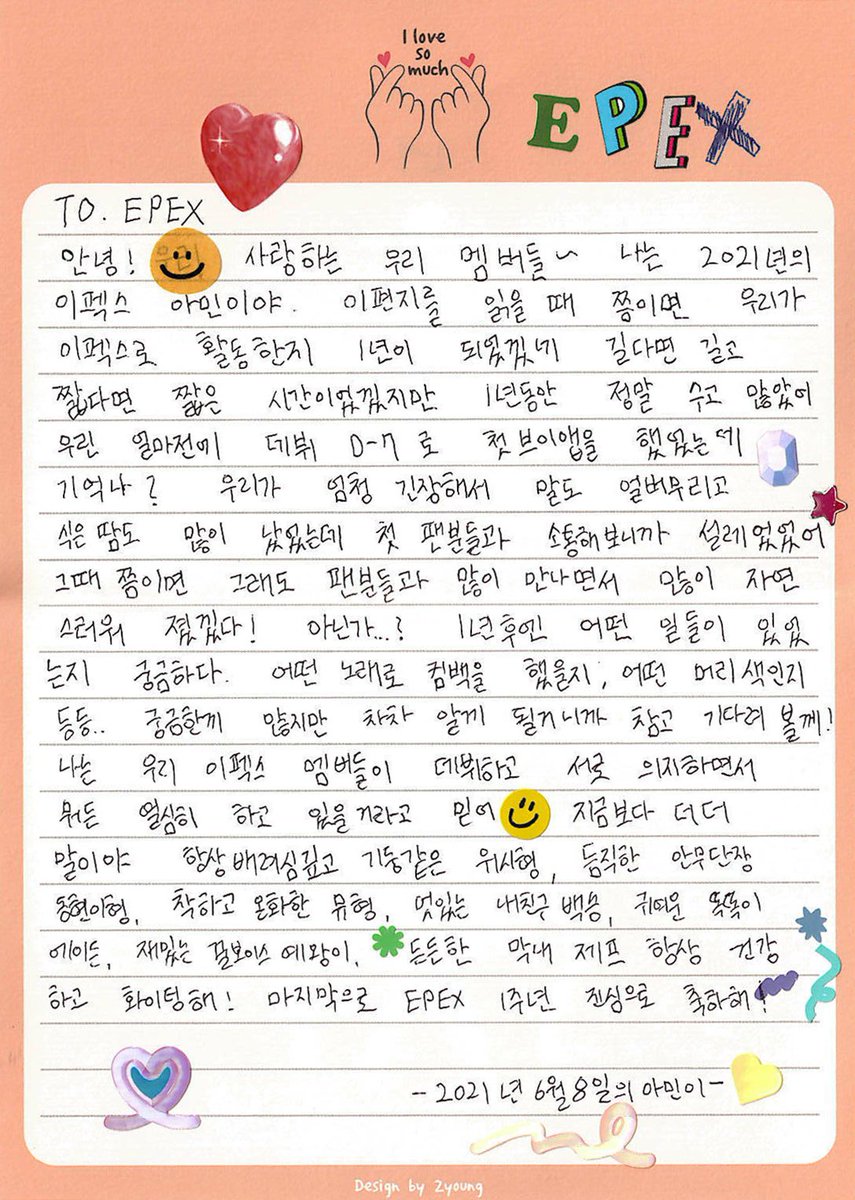 I love
so
much
EPEX
TO. EPEX
안녕! 사랑하는 우리 멤버들~ 나는 2021년의
이펙스 아민이야. 이편지를 읽을 때 쯤이면 우리가
이펙스로 활동한지 1년이 되었겠네 길다면 길고
짧다면 짧은 시간이었겠지만 1년동안 정말 수고 많았어
우린 얼마전에 데뷔 D-7로 첫 브이앱을 했었는데
기억나? 우리가 엄청 긴장해서 말도 얼버무리고
식은 땀도 많이 났었는데 첫 팬분들과 소통해보니까 설레었었어
그때 쯤이면 그래도 팬분들과 많이 만나면서 많이 자연
스러워 졌겠다! 아닌가...? 1년후엔 어떤 일들이 있었
는지 궁금하다. 어떤 노래로 컴백을 했을지, 어떤 머리색인지
등등.. 궁금한게 많지만 차차 알게 될거니까 참고 기다려 볼게!
나는 우리 이펙스 멤버들이 데뷔하고 서로 의지하면서
뭐든 열심히 하고 있을거라고 믿어 지금보다 더더
말이야 항상 배려심깊고 기둥같은 위시형, 듬직한 안무단장
동현이형, 착하고 온화한 뮤형, 멋있는 내친구 백승, 귀여운 똑똑이
에이든, 재밌는 꿀보이스 예왕이, 든든한 막내 제프 항상 건강
하고 화이팅해! 마지막으로 EPEX 1주년 진심으로 축하해!
-2021년 6월 8일의 아민이-
Design by 2young